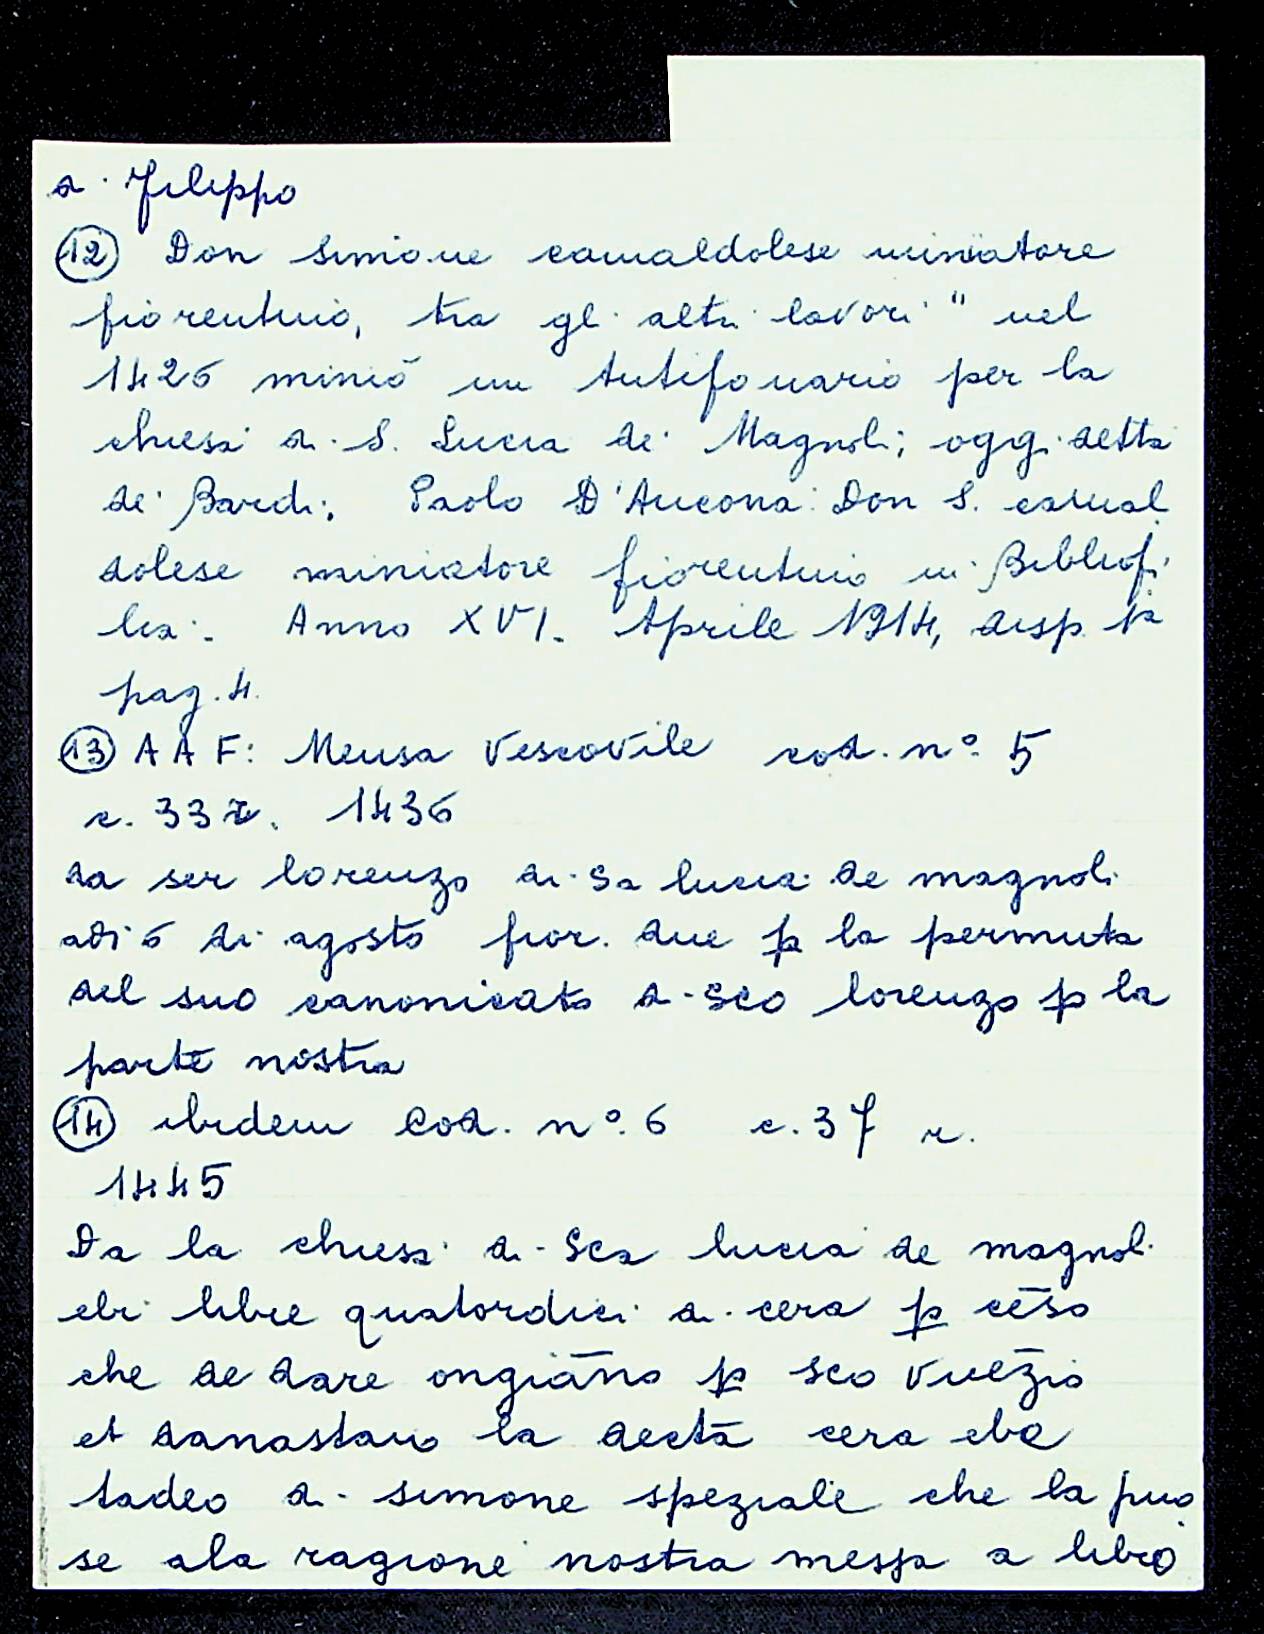 di Filippo
(12) Don Simone camaldolese miniatore
fiorentino, tra gli altri lavori " nel
1426 miniò un Antifonario per la
chiesa di S. Lucia dei Magnoli; oggi detta
dei Bardi; Paolo D'Ancona: Don S. camal
dolese miniatore fiorentino in Bibliofi
lia. Anno XVI. Aprile 1914, disp. 1a
pag. 4.
(13) A A F: Mensa Vescovile cod. n°. 5
c. 33 r. 1436
da ser lorenzo di Sa lucia de magnoli
adi 6 di agosto fior. due p la permuta
del suo canonicato di sco lorenzo p la
parte nostra
(14) ibidem Cod. n°. 6 c. 37 r.
1445
Da la chiesa di Sca lucia de magnoli
ebi libre quatordici di cera p cēso
che de dare ongiāno p sco
et la dectā cera ebe
tadeo di simone speziale che la puo
se ala ragione nostra messa a libro